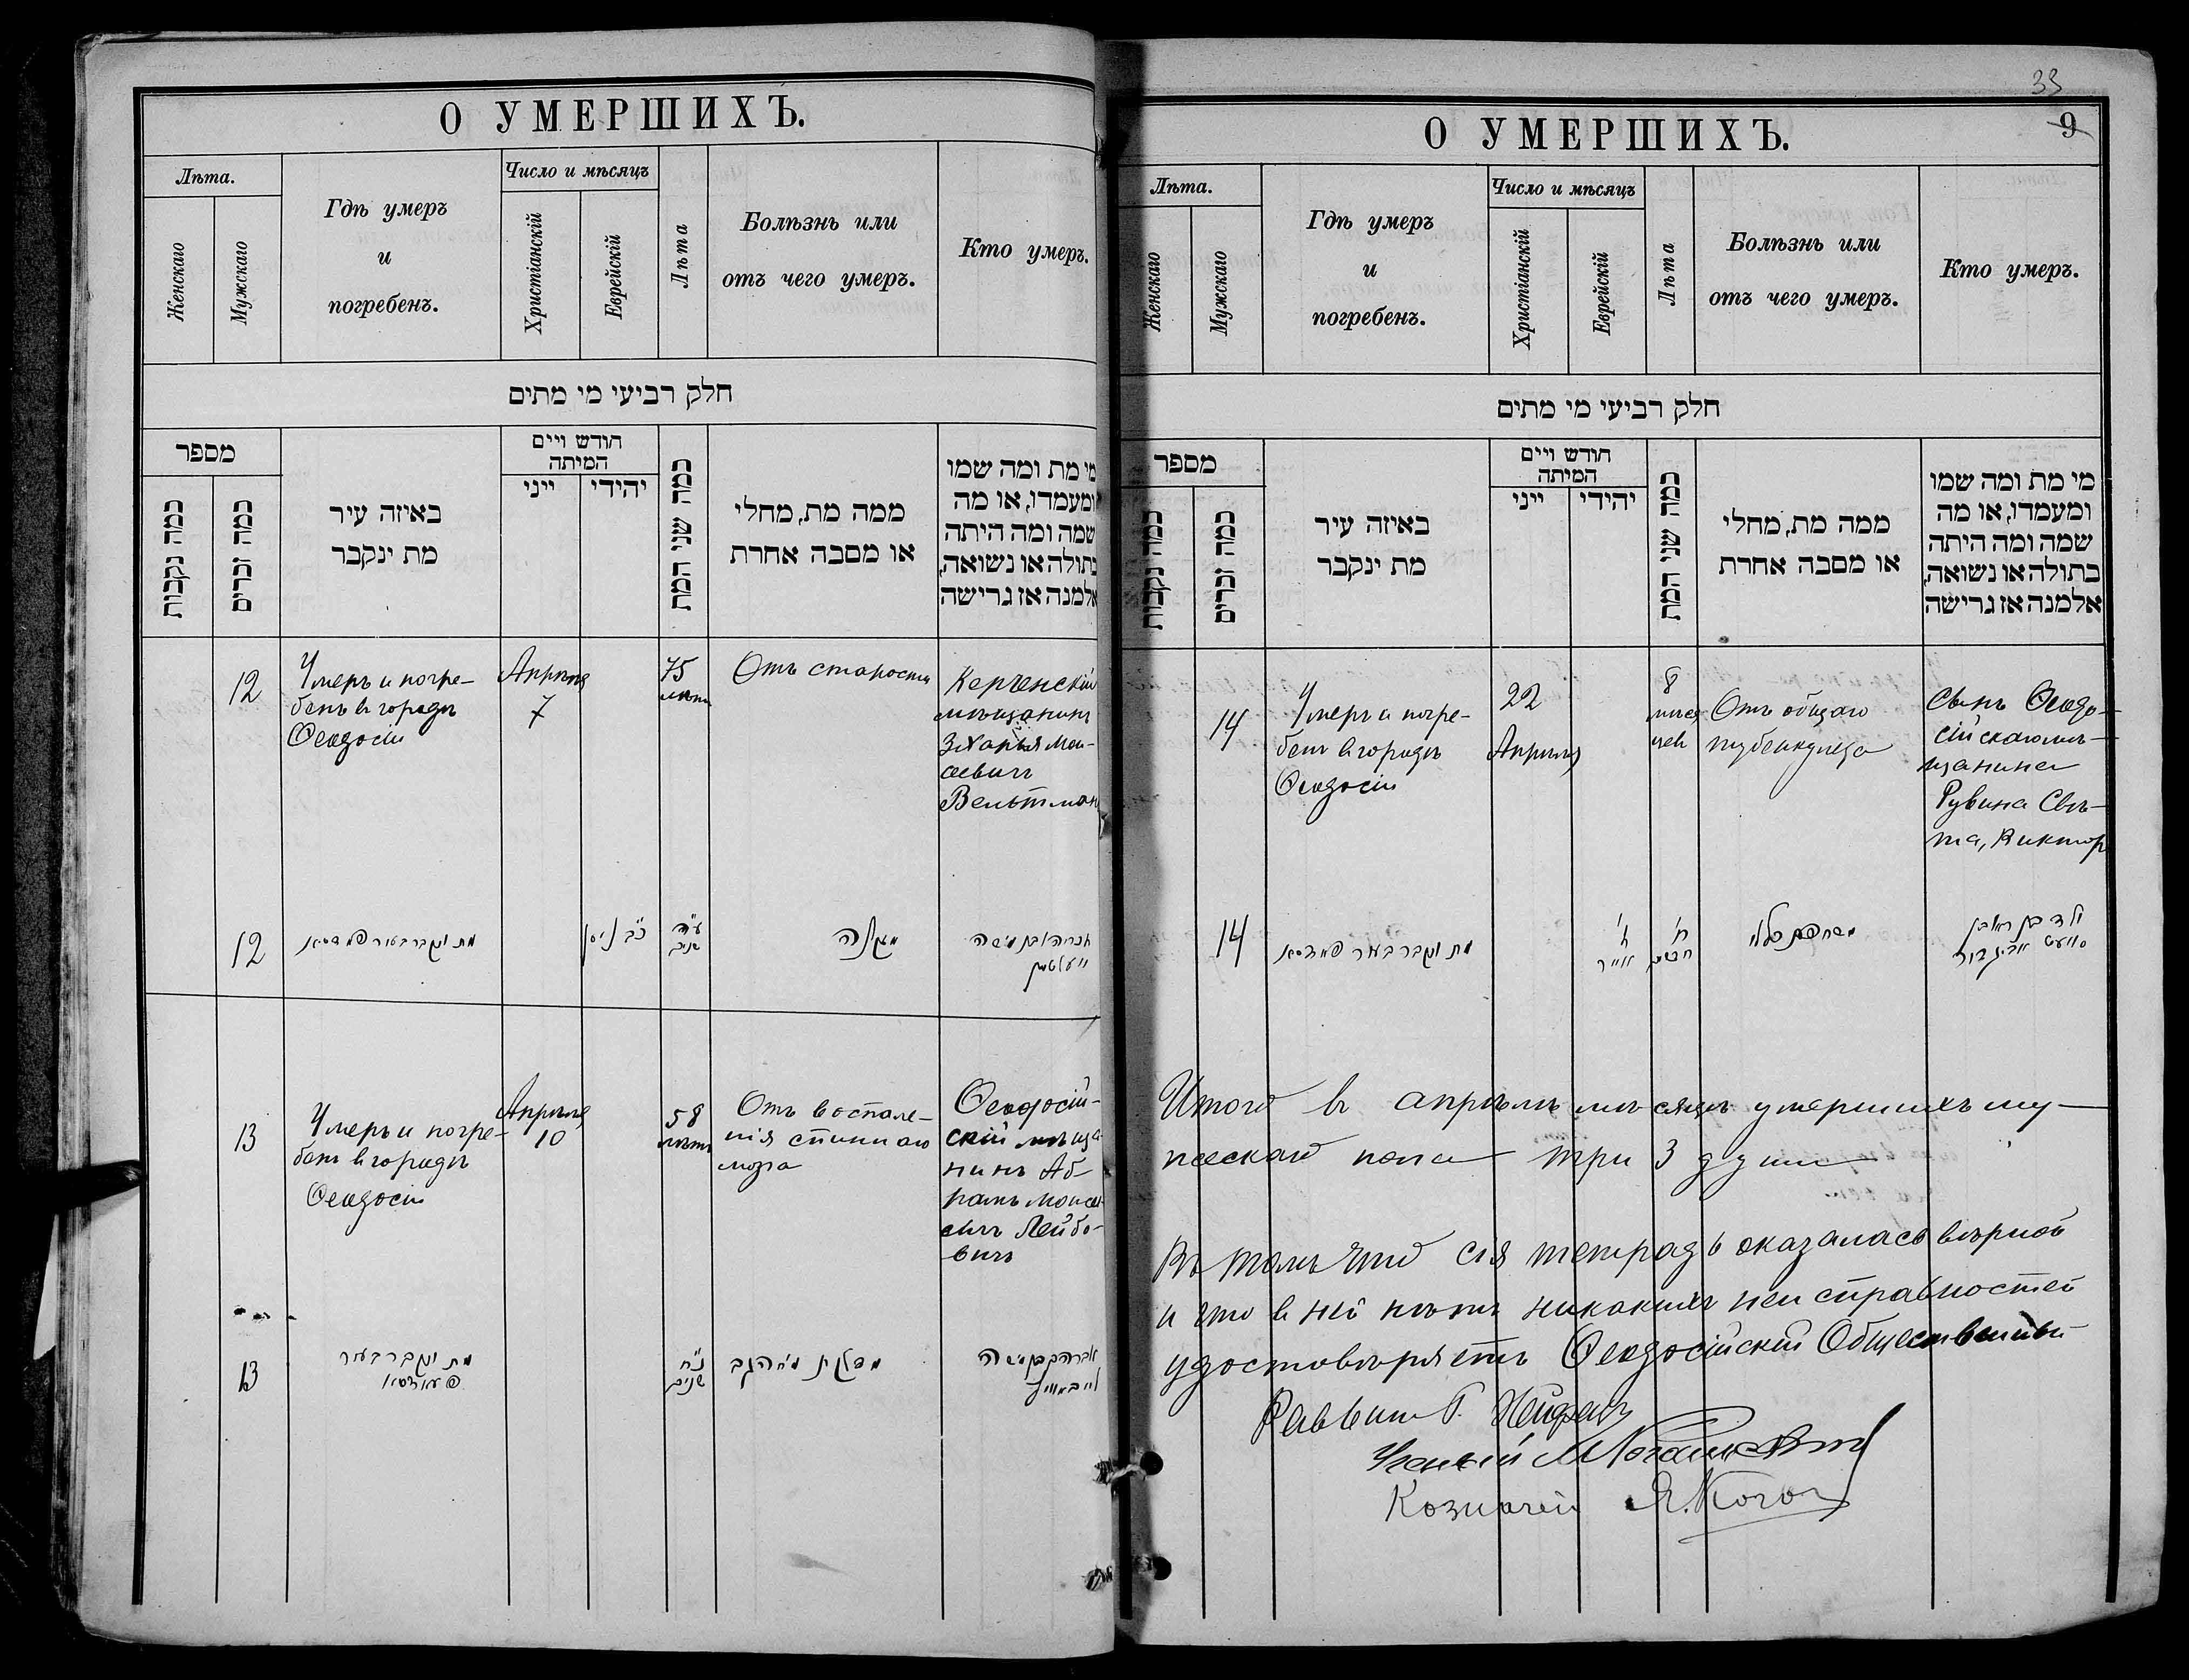 О УМЕРШИХЪ.
Лѣта.
Женскаго
Мужскаго
Гдѣ умеръ
и
погребенъ.
Число и мѣсяцъ
Христіанскій
Еврейскій
Лѣта
Болѣзнь или
отъ чего умеръ.
Кто умеръ.
חלק רביעי מי מתים
מספר
כמה נקבות
כמה זכרים
באיזה עיר
מת ינקבר
חודש ויים
המיתה
ייני
יהידי
כמה שני המת
ממה מת, מחלי
או מסבה אחרת
מי מת ומה שמו
ומעמדו, או מה
שמה ומה היתה
בתולה או נשואה,
אלמנה אז גרישה
12
Умеръ и погре-
бенъ в городѣ
Ѳеодосіи
Апрѣля
7
75
лѣтъ
Отъ старости
Керченскій
мѣщанинъ
Мои-
сеевичъ
Вельтман
12
מת ונקבר בעיר
כ"ב ניסן
ע"ה
שנים
מזקנה
בן משה
וועלטמן
13
Умеръ и погре-
бенъ в городѣ
Ѳеодосіи
Апрѣля
10
58
лѣтъ
Отъ воспале-
нія спинного
мозга
Ѳеодосій-
скій мѣща-
нинъ Аб-
рамъ Моисе-
евичъ Лейбо-
вичъ
13
מת ונקבר בעיר
נ"ח
שנים
אברהם בן משה
לייבאוויץ
33
9
О УМЕРШИХЪ.
Лѣта.
Женскаго
Мужскаго
Гдѣ умеръ
и
погребенъ.
Число и мѣсяцъ
Христіанскій
Еврейскій
Лѣта
Болѣзнь или
отъ чего умеръ.
Кто умеръ.
חלק רביעי מי מתים
מספר
כמה נקבות
כמה זכרים
באיזה עיר
מת ינקבר
חודש ויים
המיתה
ייני
יהידי
כמה שני המת
ממה מת, מחלי
או מסבה אחרת
מי מת ומה שמו
ומעמדו, או מה
שמה ומה היתה
בתולה או נשואה,
אלמנה אז גרישה
14
Умеръ и погре-
бенъ в городѣ
Ѳеодосіи
22
Апрѣля
8
мѣся
цев
Отъ общаго
туберкулеза
Сынъ Ѳеодо-
сійскаго мѣ-
щанина
Рувина Свѣ-
та, Виктор
14
מת ונקבר בעיר
אייר
ח'
חדשים
ילד בן ראובן
סוועט
Итого в апрѣлѣ мѣсяцѣ умершихъ му-
жескаго пола три 3 души
Въ томъ что сія тетрадь оказалась вѣрной
и что в ней нѣтъ никакихъ неисправностей
удостовѣряетъ Ѳеодосійскій Общественный
Раввинъ
Ученый
Казначей Я. Коган